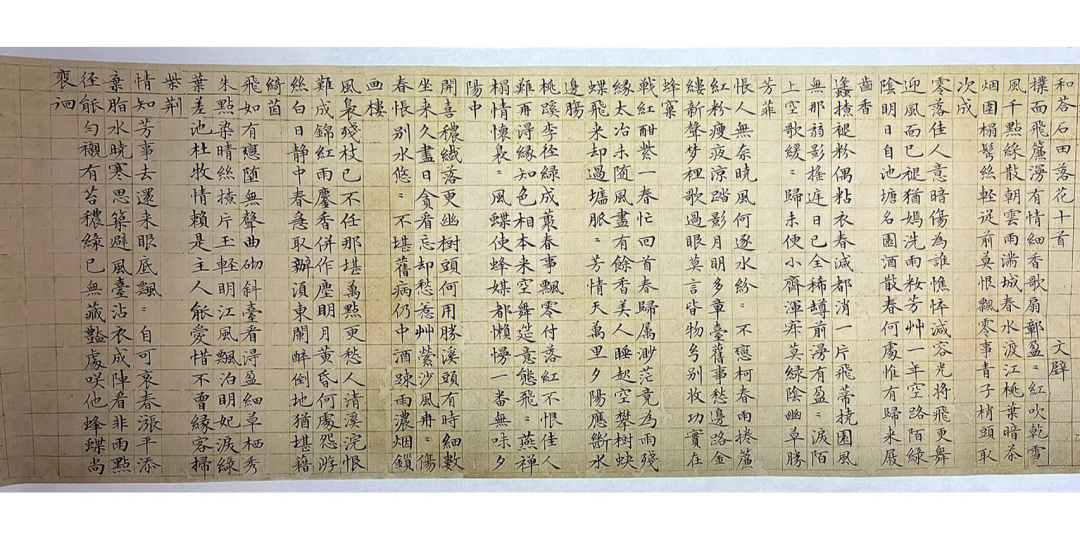 和荅石田落花十首 文璧
撲面飛簾漫有情細香歌扇鄣盈=紅吹乾雪
風千點綵散朝雲雨滿城春水渡江桃葉暗茶
烟圍榻鬂絲輕從前莫恨飄零事青子梢頭取
次成
零落佳人意暗傷為誰憔悴減容光將飛更舞
迎風面已褪猶嫣洗雨粧芳艸一年空路陌綠
陰明日自池塘名園酒散春何處惟有歸来屐
齒香
逢撩褪粉偶粘衣春減都消一片飛蒂撓園風
無那弱影搖庭日已全稀罇前漫有盈=淚陌
上空歌緩=歸未便小齋渾寂莫綠陰幽草勝
芳菲
悵人無奈曉風何逐水紛=不戀柯春雨捲簾
紅粉瘦夜涼踏影月明多章臺舊事愁邊路金
縷新聲夢裡歌過眼莫言皆物兮别收功實在
蜂窠
戰紅酣紫一春忙回首春歸属渺茫竟為雨殘
緣太冶未随風盡有餘香美人睡起空攀樹蛺
蝶飛来却過墻脈=芳情天萬里夕陽應斷水
邊腸
桃蹊李径綠成叢春事飄零付落紅不恨佳人
難再淂緣知色相本来空舞筵意態飛=燕禪
榻情懷裊=風蝶使蜂媒都懶慢一番無味夕
陽中
開喜穠纖落更幽樹頭何用勝溪頭有時細數
坐来久盡日貪看忘却愁惹艸縈沙風冉=傷
春悵别水悠=不堪舊病仍中酒踈雨濃烟鎖
画樓
風裊殘枝已不任那堪萬點更愁人清溪浣恨
難成錦紅雨麈香併作塵明月黄昏何處怨游
絲白日静中春急取辦湏東閣醉倒地猶堪藉
綺茵
飛如有戀随無聲曲砌斜臺看淂盈細草栖秀
朱點染晴絲撩片玉軽明江風飄泊明妃淚綠
葉差池杜牧情賴是主人能愛惜不曾緣客掃
柴荆
情知芳事去還来眼底飄=自可哀春漲平添
棄脂水曉寒思築避風臺沾衣成陣看非雨點
径能勻襯有苔穠綠已無藏豔處咲他蜂蝶尚
裵洄